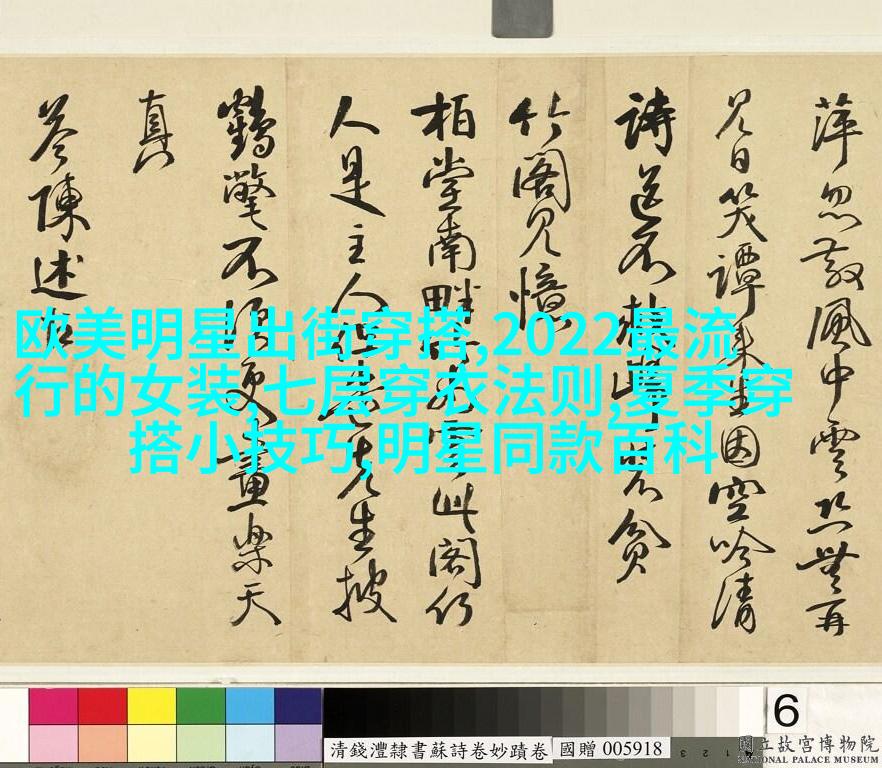 萍忽散風中雲恐無再
見日笑譚來生因空吟清
詩送不救歸裝貧
竹閣見憶
柏堂南畔竹如雲此閣何
人是主人但遣先生披
鶴氅不須更畫樂天
真
答陳述古
欧美明星出街穿搭,2022最流
行的女装,七层穿衣法则,夏季穿
搭小技巧,明星同款百科
6
清錢灃隸書蘇詩卷妙蹟卷
國贈 005918
國立故宮博物院
NATIONAL PALACE MUSEUM